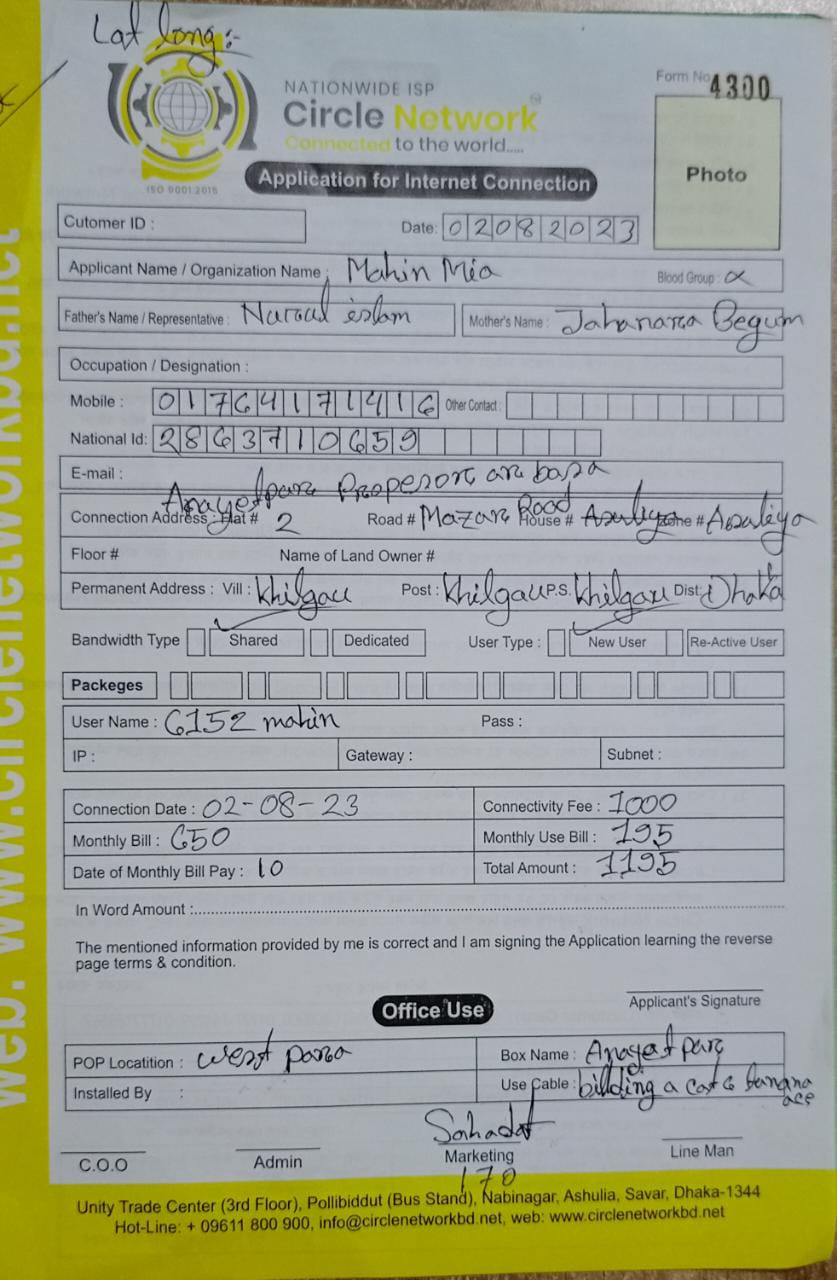 Lat long:-
NATIONWIDE ISP
Circle Network
Connected to the world.....
ISO 9001:2015
Form No 4300
Photo
Application for Internet Connection
Cutomer ID :
Date: 02082023
Applicant Name / Organization Name : Mahin Mia Blood Group :
Father's Name / Representative : Nurul islam Mother's Name : Jahanara Begum
Occupation / Designation :
Mobile : 01764171416 Other Contact :
National Id: 2863710659
E-mail :
Anayetpur Propesor ar basa
Connection Address : Flat # 2 Road # Mazar Road House # Asuliya Zone # Asuliya
Floor # Name of Land Owner #
Permanent Address : Vill : Khilgau Post : Khilgau P.S. Khilgau Dist: Dhaka
Bandwidth Type Shared Dedicated User Type : New User Re-Active User
Packeges
User Name : 6152 mahin Pass :
IP : Gateway : Subnet :
Connection Date : 02-08-23 Connectivity Fee : 1000
Monthly Bill : 650 Monthly Use Bill : 195
Date of Monthly Bill Pay : 10 Total Amount : 1195
In Word Amount :
The mentioned information provided by me is correct and I am signing the Application learning the reverse
page terms & condition.
Applicant's Signature
Office Use
POP Locatition : West para Box Name : Anayet para
Installed By : Use Cable : billding a cat 6
Sahadat
C.O.O Admin Marketing Line Man
170
Unity Trade Center (3rd Floor), Pollibiddut (Bus Stand), Nabinagar, Ashulia, Savar, Dhaka-1344
Hot-Line: + 09611 800 900, info@circlenetworkbd.net, web: www.circlenetworkbd.net
web: www.circlenetworkbd.net